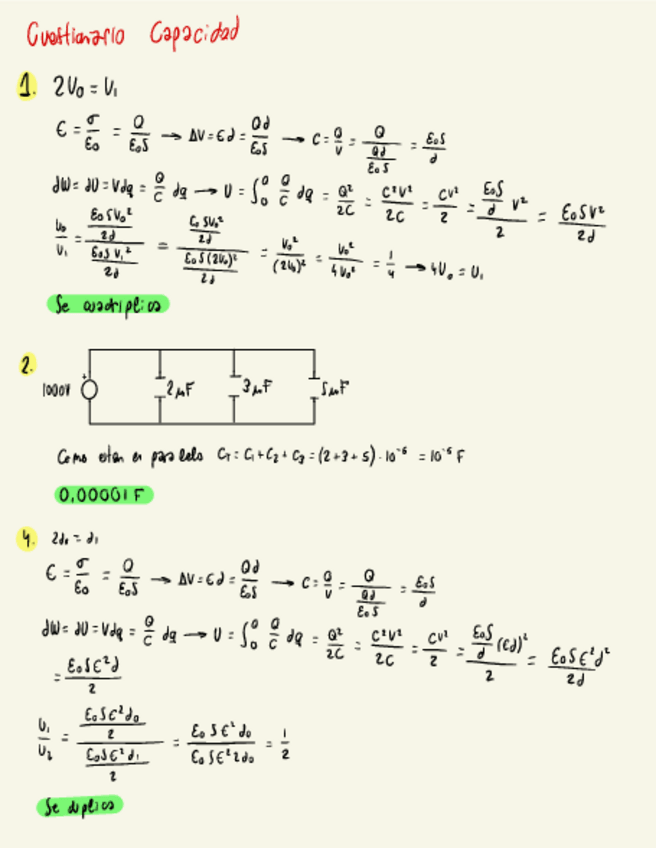 Cuestionario Capacidad
1. 2V₀ = V₁
E = σ/ε₀ = Q/ε₀S → ΔV = Ed = Qd/ε₀S → C = Q/V = Q/(Qd/ε₀S) = ε₀S/d
dW = dU = Vdq = Q/C dq → U = ∫₀^Q Q/C dq = Q²/2C = C²V²/2C = CV²/2 = (ε₀S/d V²)/2 = ε₀SV²/2d
U₀/U₁ = (ε₀SV₀²/2d)/(ε₀SV₁²/2d) = (ε₀SV₀²/2d)/(ε₀S(2V₀)²/2d) = V₀²/(2V₀)² = V₀²/4V₀² = 1/4 → 4U₀ = U₁
Se cuadriplica
2.
1000V 2μF 3μF 5μF
Como estan en paralelo C_T = C₁ + C₂ + C₃ = (2+3+5)·10⁻⁶ = 10⁻⁵ F
0,00001 F
4. 2d₀ = d₁
E = σ/ε₀ = Q/ε₀S → ΔV = Ed = Qd/ε₀S → C = Q/V = Q/(Qd/ε₀S) = ε₀S/d
dW = dU = Vdq = Q/C dq → U = ∫₀^Q Q/C dq = Q²/2C = C²V²/2C = CV²/2 = (ε₀S/d (Ed)²)/2 = ε₀SE²d²/2d
= ε₀SE²d/2
U₁/U₂ = (ε₀SE²d₀/2)/(ε₀SE²d₁/2) = ε₀SE²d₀/ε₀SE²2d₀ = 1/2
Se duplica